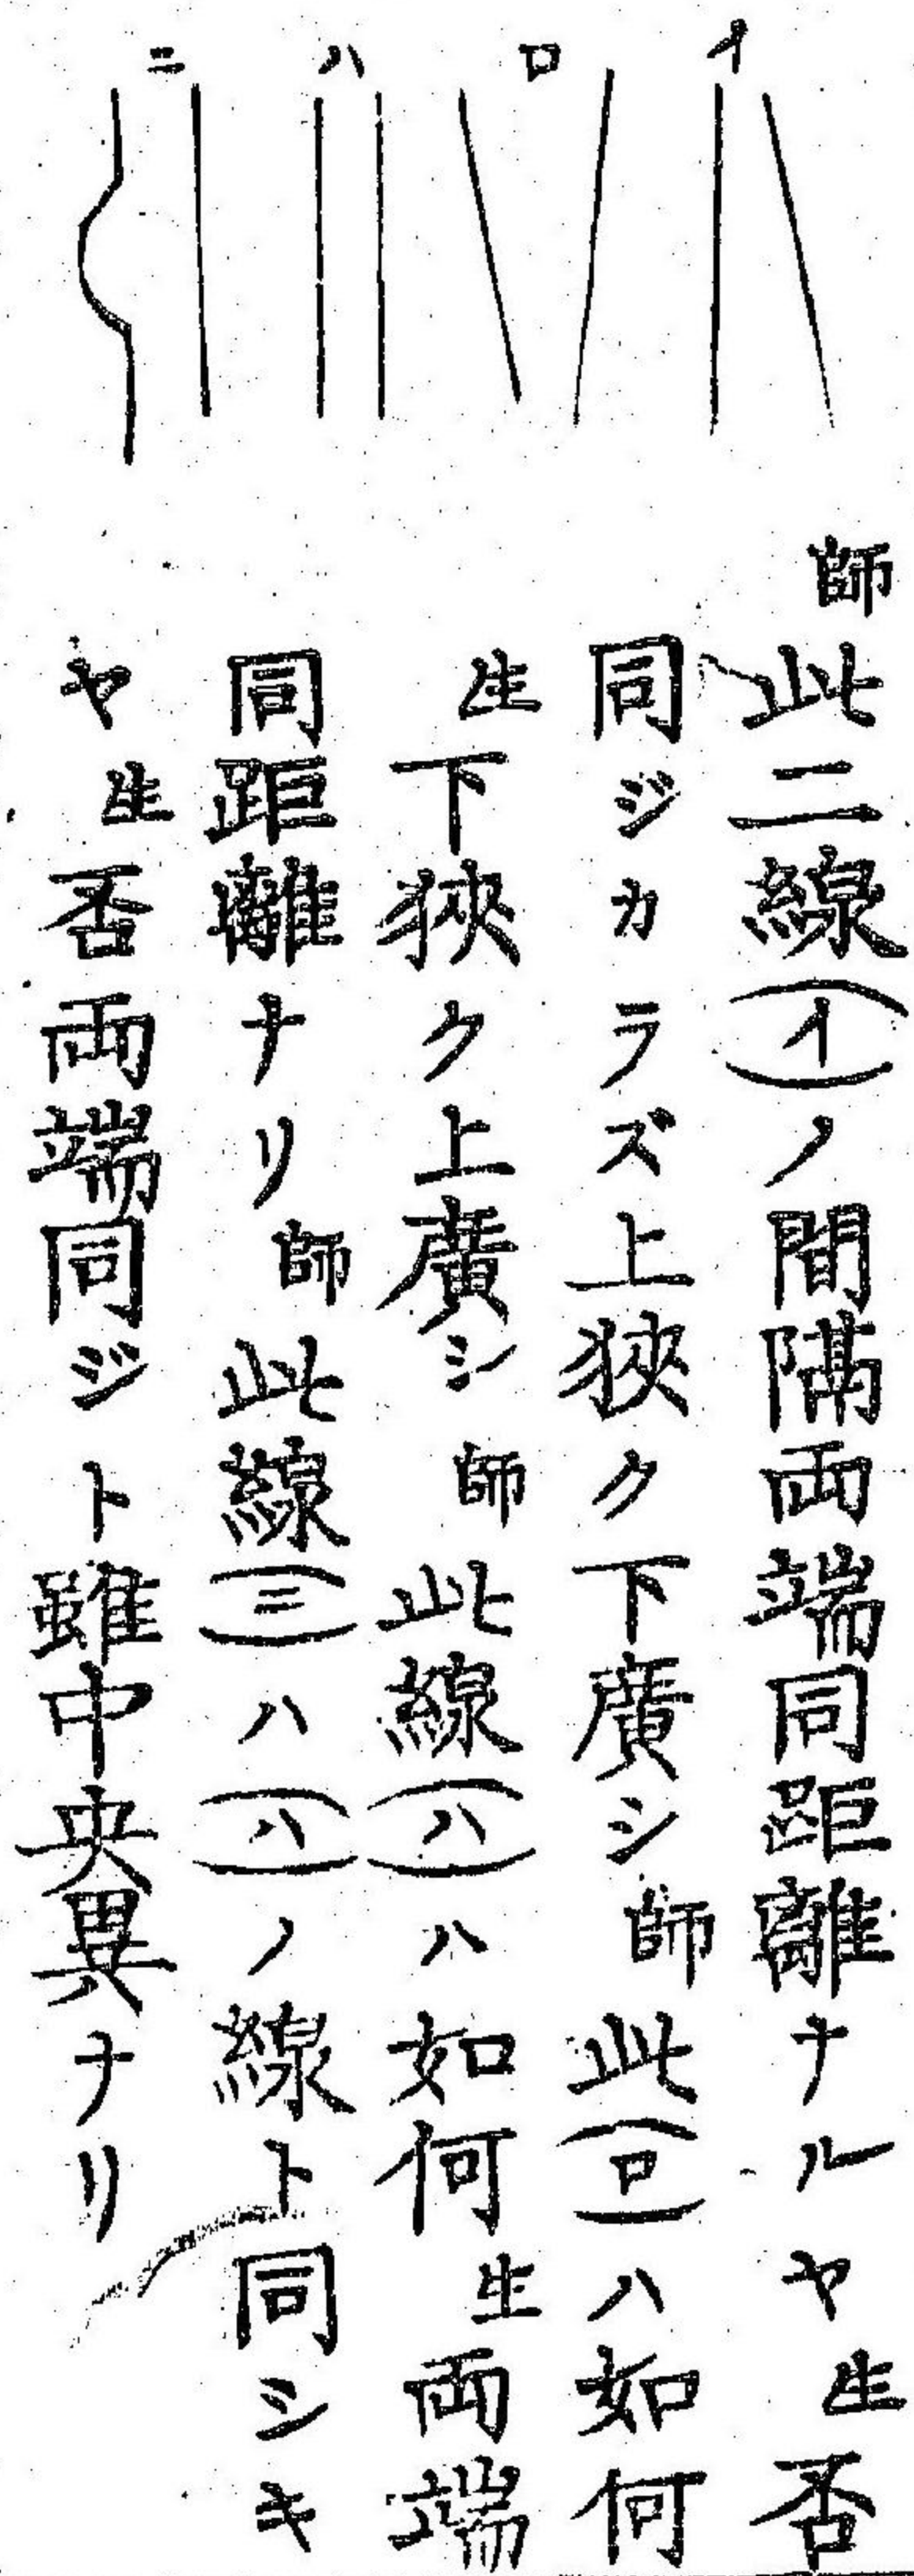 イ
ロ
ハ
ニ
師此二線(イ)ノ間隔両端同距離ナルヤ生否
同ジカラズ上狹ク下廣シ師此(ロ)ハ如何
生下狹ク上廣シ師此線(ハ)ハ如何生両端
同距離ナリ師此線(三)ハ(ハ)ノ線ト同シキ
ヤ生否両端同ジト雖中央異ナリ